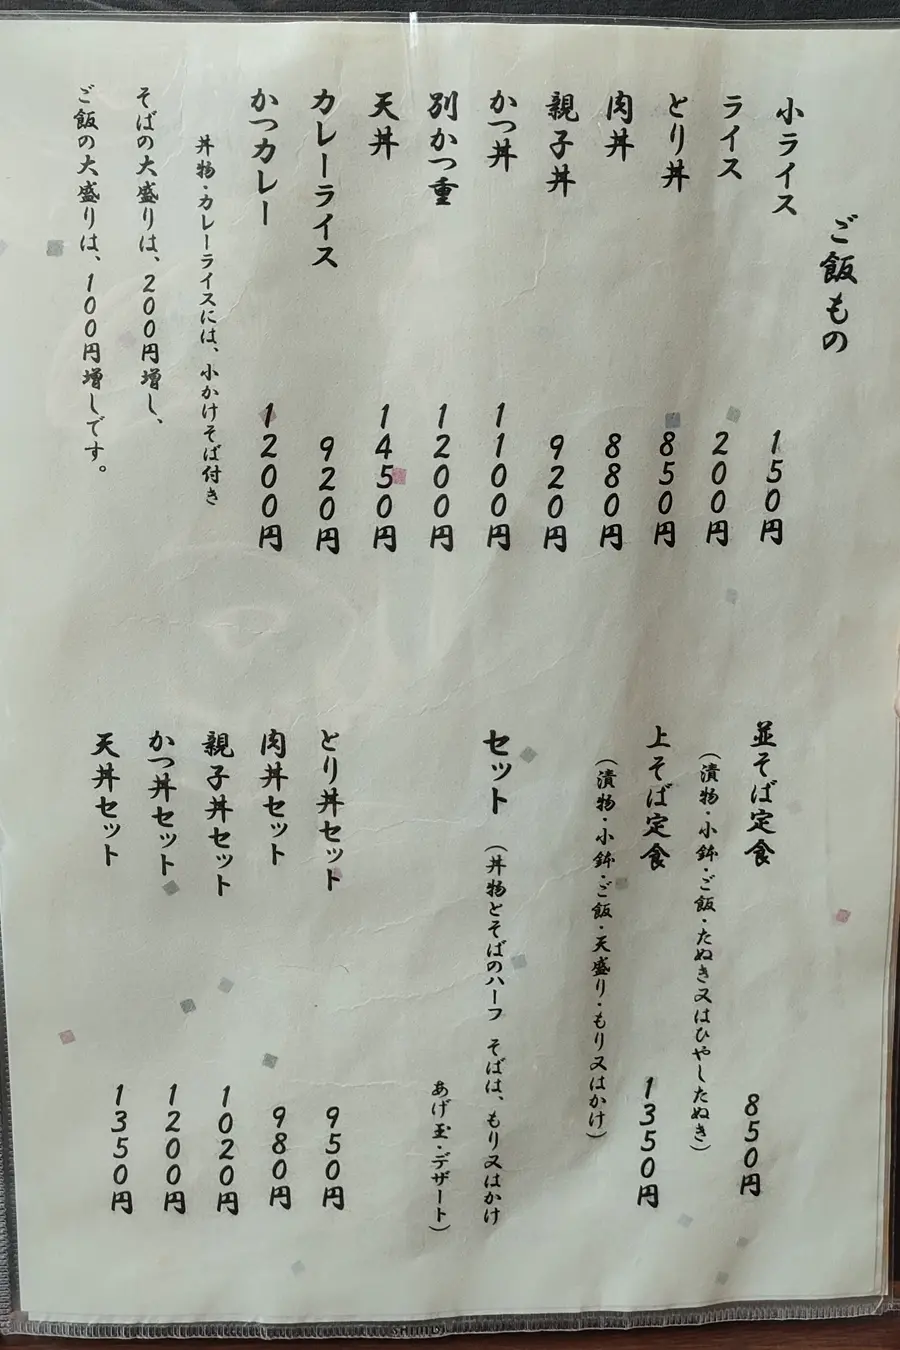 ご飯もの
小ライス 150円
ライス 200円
とり丼 850円
肉丼 880円
親子丼 920円
かつ丼 1100円
別かつ重 1200円
天丼 1450円
カレーライス 920円
かつカレー 1200円
丼物・カレーライスには、小かけそば付き
そばの大盛りは、200円増し、
ご飯の大盛りは、100円増しです。
並そば定食 850円
(漬物・小鉢・ご飯・たぬき又はひやしたぬき)
上そば定食 1350円
(漬物・小鉢・ご飯・天盛り・もり又はかけ)
セット (丼物とそばのハーフ そばは、もり又はかけ
あげ玉・デザート)
とり丼セット 950円
肉丼セット 980円
親子丼セット 1020円
かつ丼セット 1200円
天丼セット 1350円